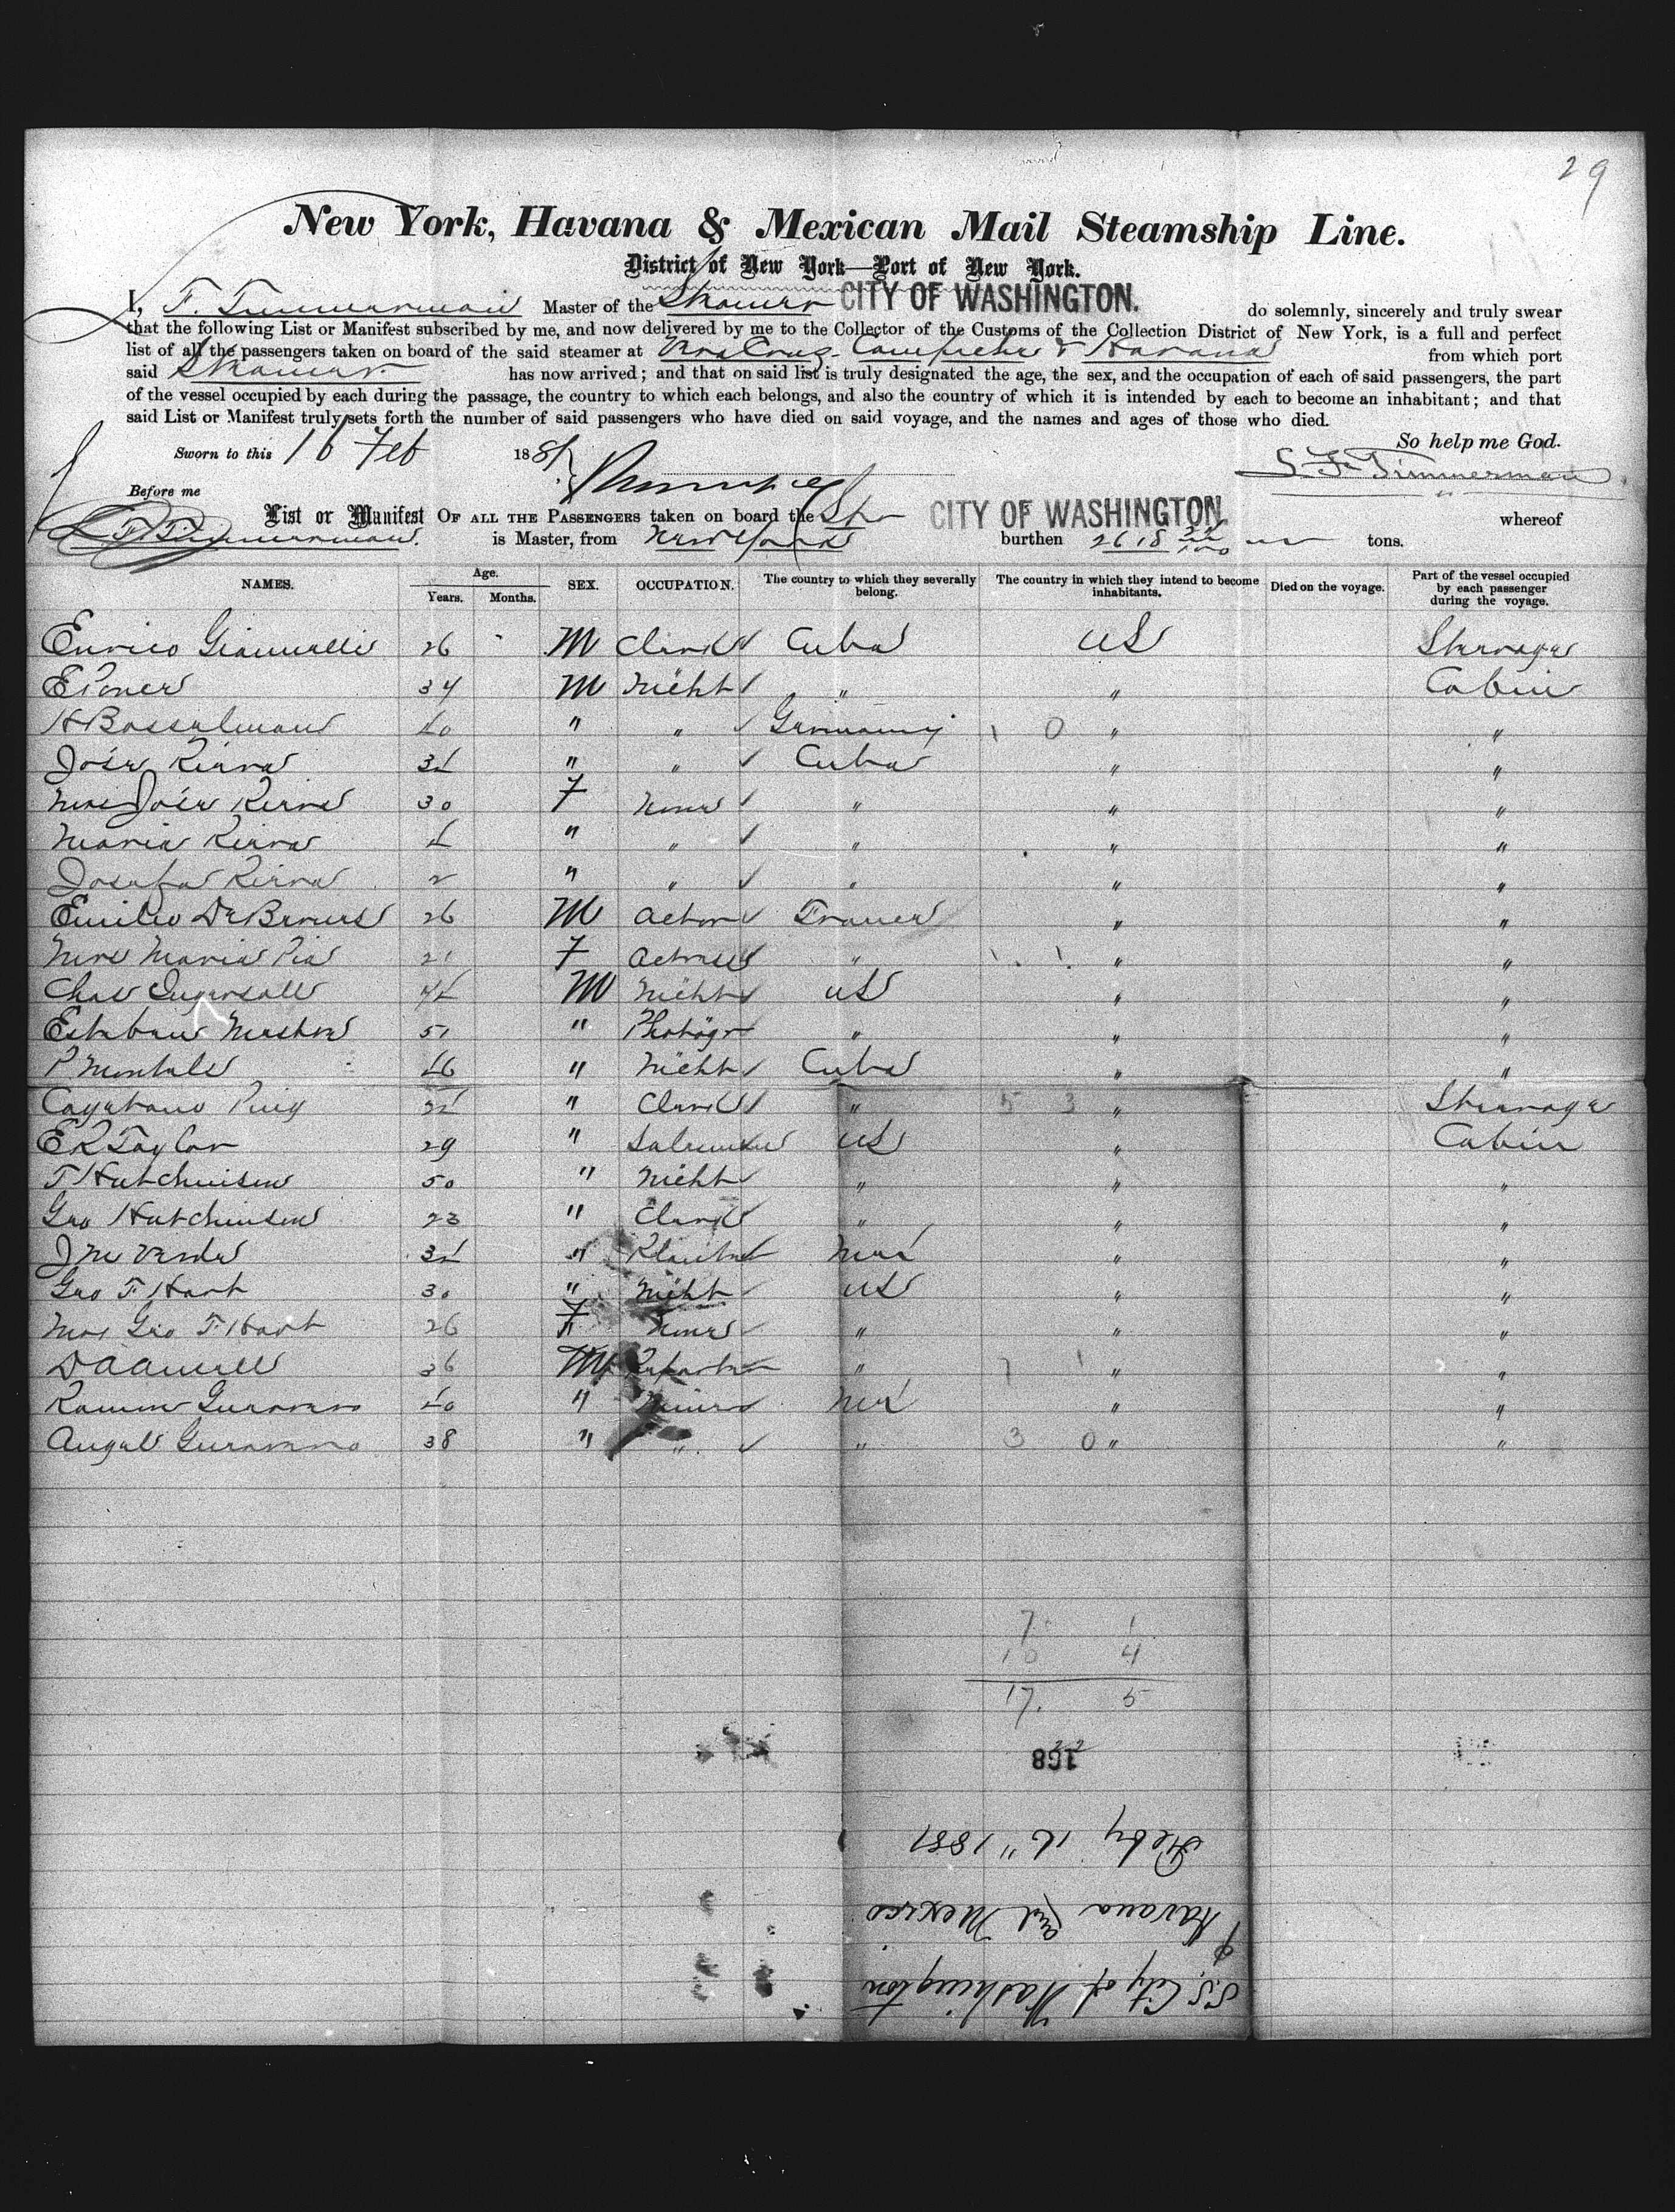 29
New York, Havana & Mexican Mail Steamship Line.
District of New York—Port of New York.
I, F. Timmerman Master of the Steamer CITY OF WASHINGTON. do solemnly, sincerely and truly swear
that the following List or Manifest subscribed by me, and now delivered by me to the Collector of the Customs of the Collection District of New York, is a full and perfect
list of all the passengers taken on board of the said steamer at Vera Cruz, Campeche & Havana from which port
said Steamer has now arrived; and that on said list is truly designated the age, the sex, and the occupation of each of said passengers, the part
of the vessel occupied by each during the passage, the country to which each belongs, and also the country of which it is intended by each to become an inhabitant; and that
said List or Manifest truly sets forth the number of said passengers who have died on said voyage, and the names and ages of those who died.
So help me God.
Sworn to this 16 Feb 1881
S. F. Timmerman
Before me
List or Manifest OF ALL THE PASSENGERS taken on board the Str CITY OF WASHINGTON. whereof
F. Timmerman is Master, from New York burthen 2618 tons.
NAMES. Age. Years. Months. SEX. OCCUPATION. The country to which they severally belong. The country in which they intend to become inhabitants. Died on the voyage. Part of the vessel occupied by each passenger during the voyage.
Enrico 26 M Clerk Cuba US Steerage
34 M Mcht " " Cabin
40 " " Germany 1 0 " "
José 35 " " Cuba " "
Mrs José 30 F None " " "
Maria 5 " " " " "
Josefa 2 " " " " "
Emilio 26 M Actor France " "
Maria Pia 21 F Actress " 1 1 " "
Chas Ingersoll 45 M Mcht US " "
Esteban 51 " Photogr " " "
P 46 " Mcht Cuba " "
Cayetano Puig 25 " Clerk " 5 3 " Steerage
E R Taylor 29 " Salesman US " Cabin
T Hutchinson 50 " Mcht " " "
Geo Hutchinson 23 " Clerk " " "
J M 35 " Planter Mex " "
Geo F Hart 30 " Mcht US " "
Mrs Geo F Hart 26 F None " " "
36 M Reporter " 7 1 " "
Ramon 40 " Miner Mex " "
Angel 38 " " " 3 0 " "
7 1
10 4
17. 5
22
168
Feby 16" 1881
Havana and Mexico
S.S. City of Washington